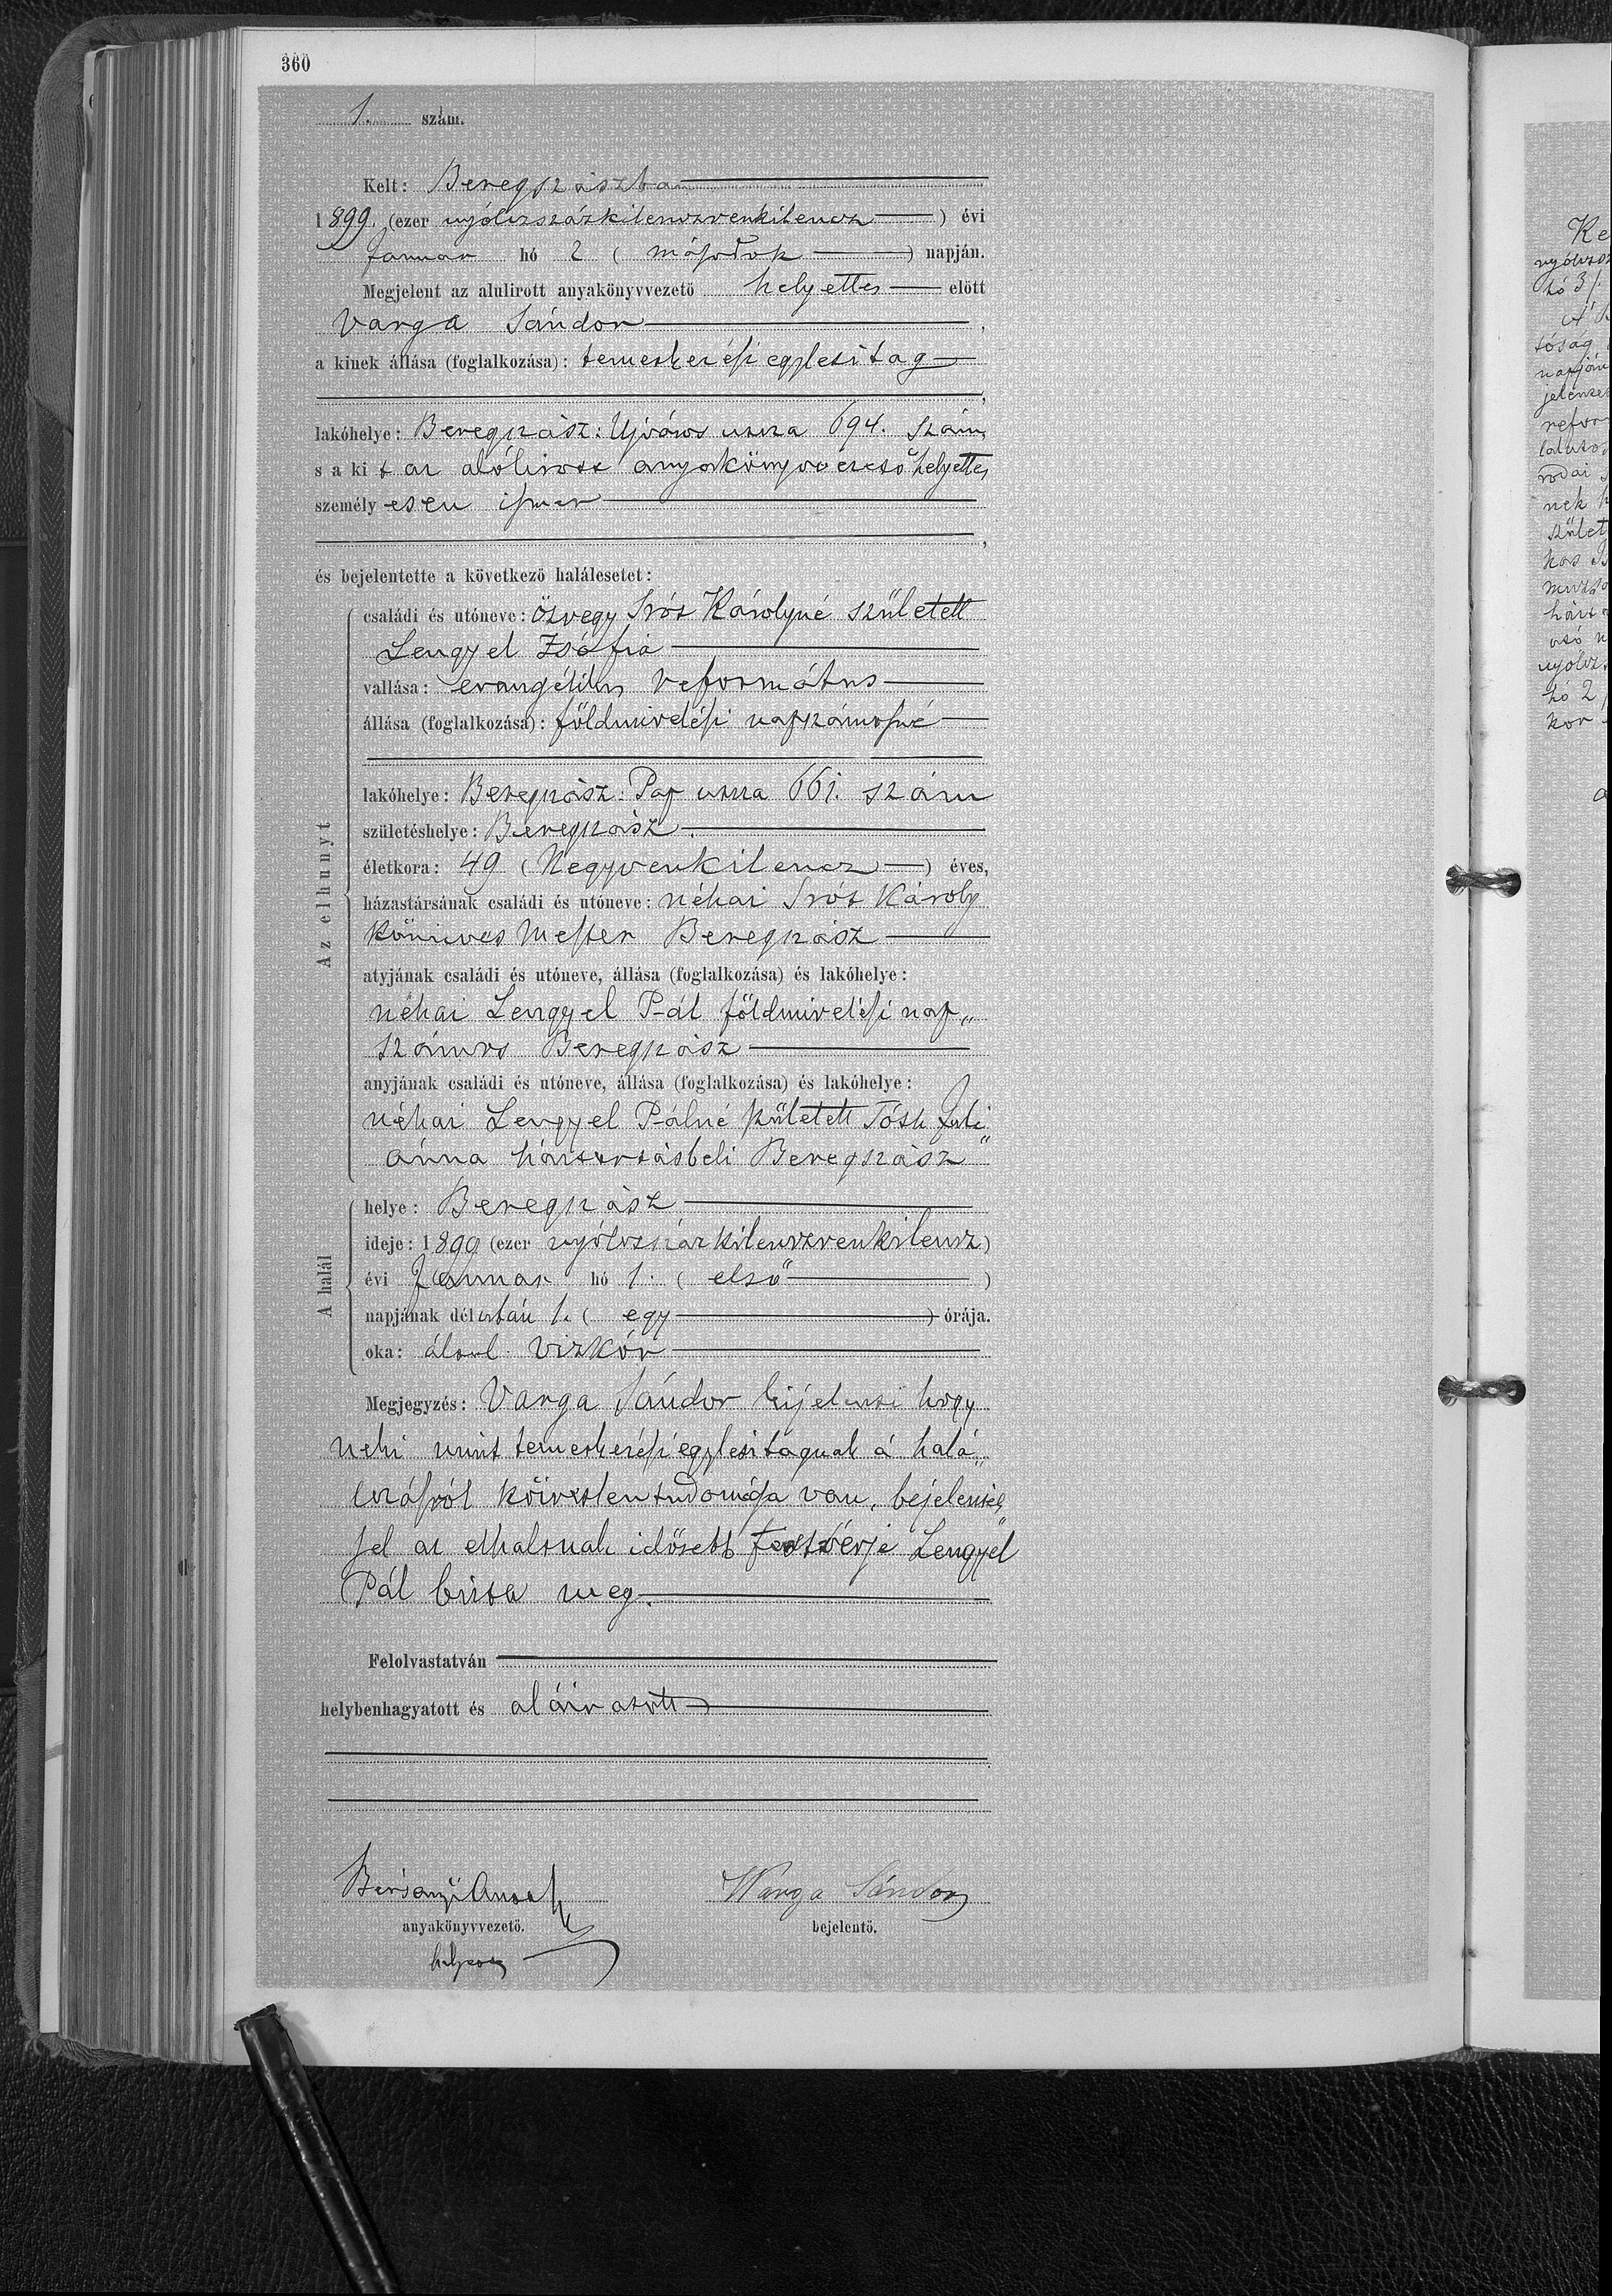 360
1. szám.
Kelt: Beregszászban
1899. (ezer nyólczszázkilenczvenkilencz) évi
Januar hó 2 (második) napján.
Megjelent az alulirott anyakönyvvezető helyettes előtt
Varga Sándor,
a kinek állása (foglalkozása): temetkezési egyleti tag
lakóhelye: Beregszász: Ujváros utcza 694. szám,
s a kit az alólirott anyakönyvvezető helyettes
személyesen ismer
,
és bejelentette a következő halálesetet:
Az elhunyt
családi és utóneve: özvegy Károlyné született
Lengyel Zsófia
vallása: evangélikus református
állása (foglalkozása): földmivelési napszámosné
lakóhelye: Beregszász: Pap utcza 661. szám
születéshelye: Beregszász.
életkora: 49 (Negyvenkilencz) éves,
házastársának családi és utóneve: néhai Károly
Kőmives Mester Beregszász
atyjának családi és utóneve, állása (foglalkozása) és lakóhelye:
néhai Lengyel Pál földmivelési nap„
számos Beregszász
anyjának családi és utóneve, állása (foglalkozása) és lakóhelye:
néhai Lengyel Pálné született Tóth Juli
ánna háztartásbeli Beregszász"
A halál
helye: Beregszász
ideje: 1899 (ezer nyólczszázkilenczvenkilencz)
évi Januar hó 1. (első)
napjának délután 1. (egy) órája.
oka: vizkór
Megjegyzés: Varga Sándor kijelenti hogy
neki mint temetkezési egyleti tagnak a halá„
lozásról közvetlen tudomása van, bejelentés„
sel az elhaltnak idősebb testvérje Lengyel
Pál bizta meg.
Felolvastatván
helybenhagyatott és aláiratott
anyakönyvvezető.
Varga Sándor
bejelentő.
Ke
nyólczsz
hó 31.
tóság
napján
jelense
refor
rodai
nek
szület
kas
nyólcz
hó 2
kor